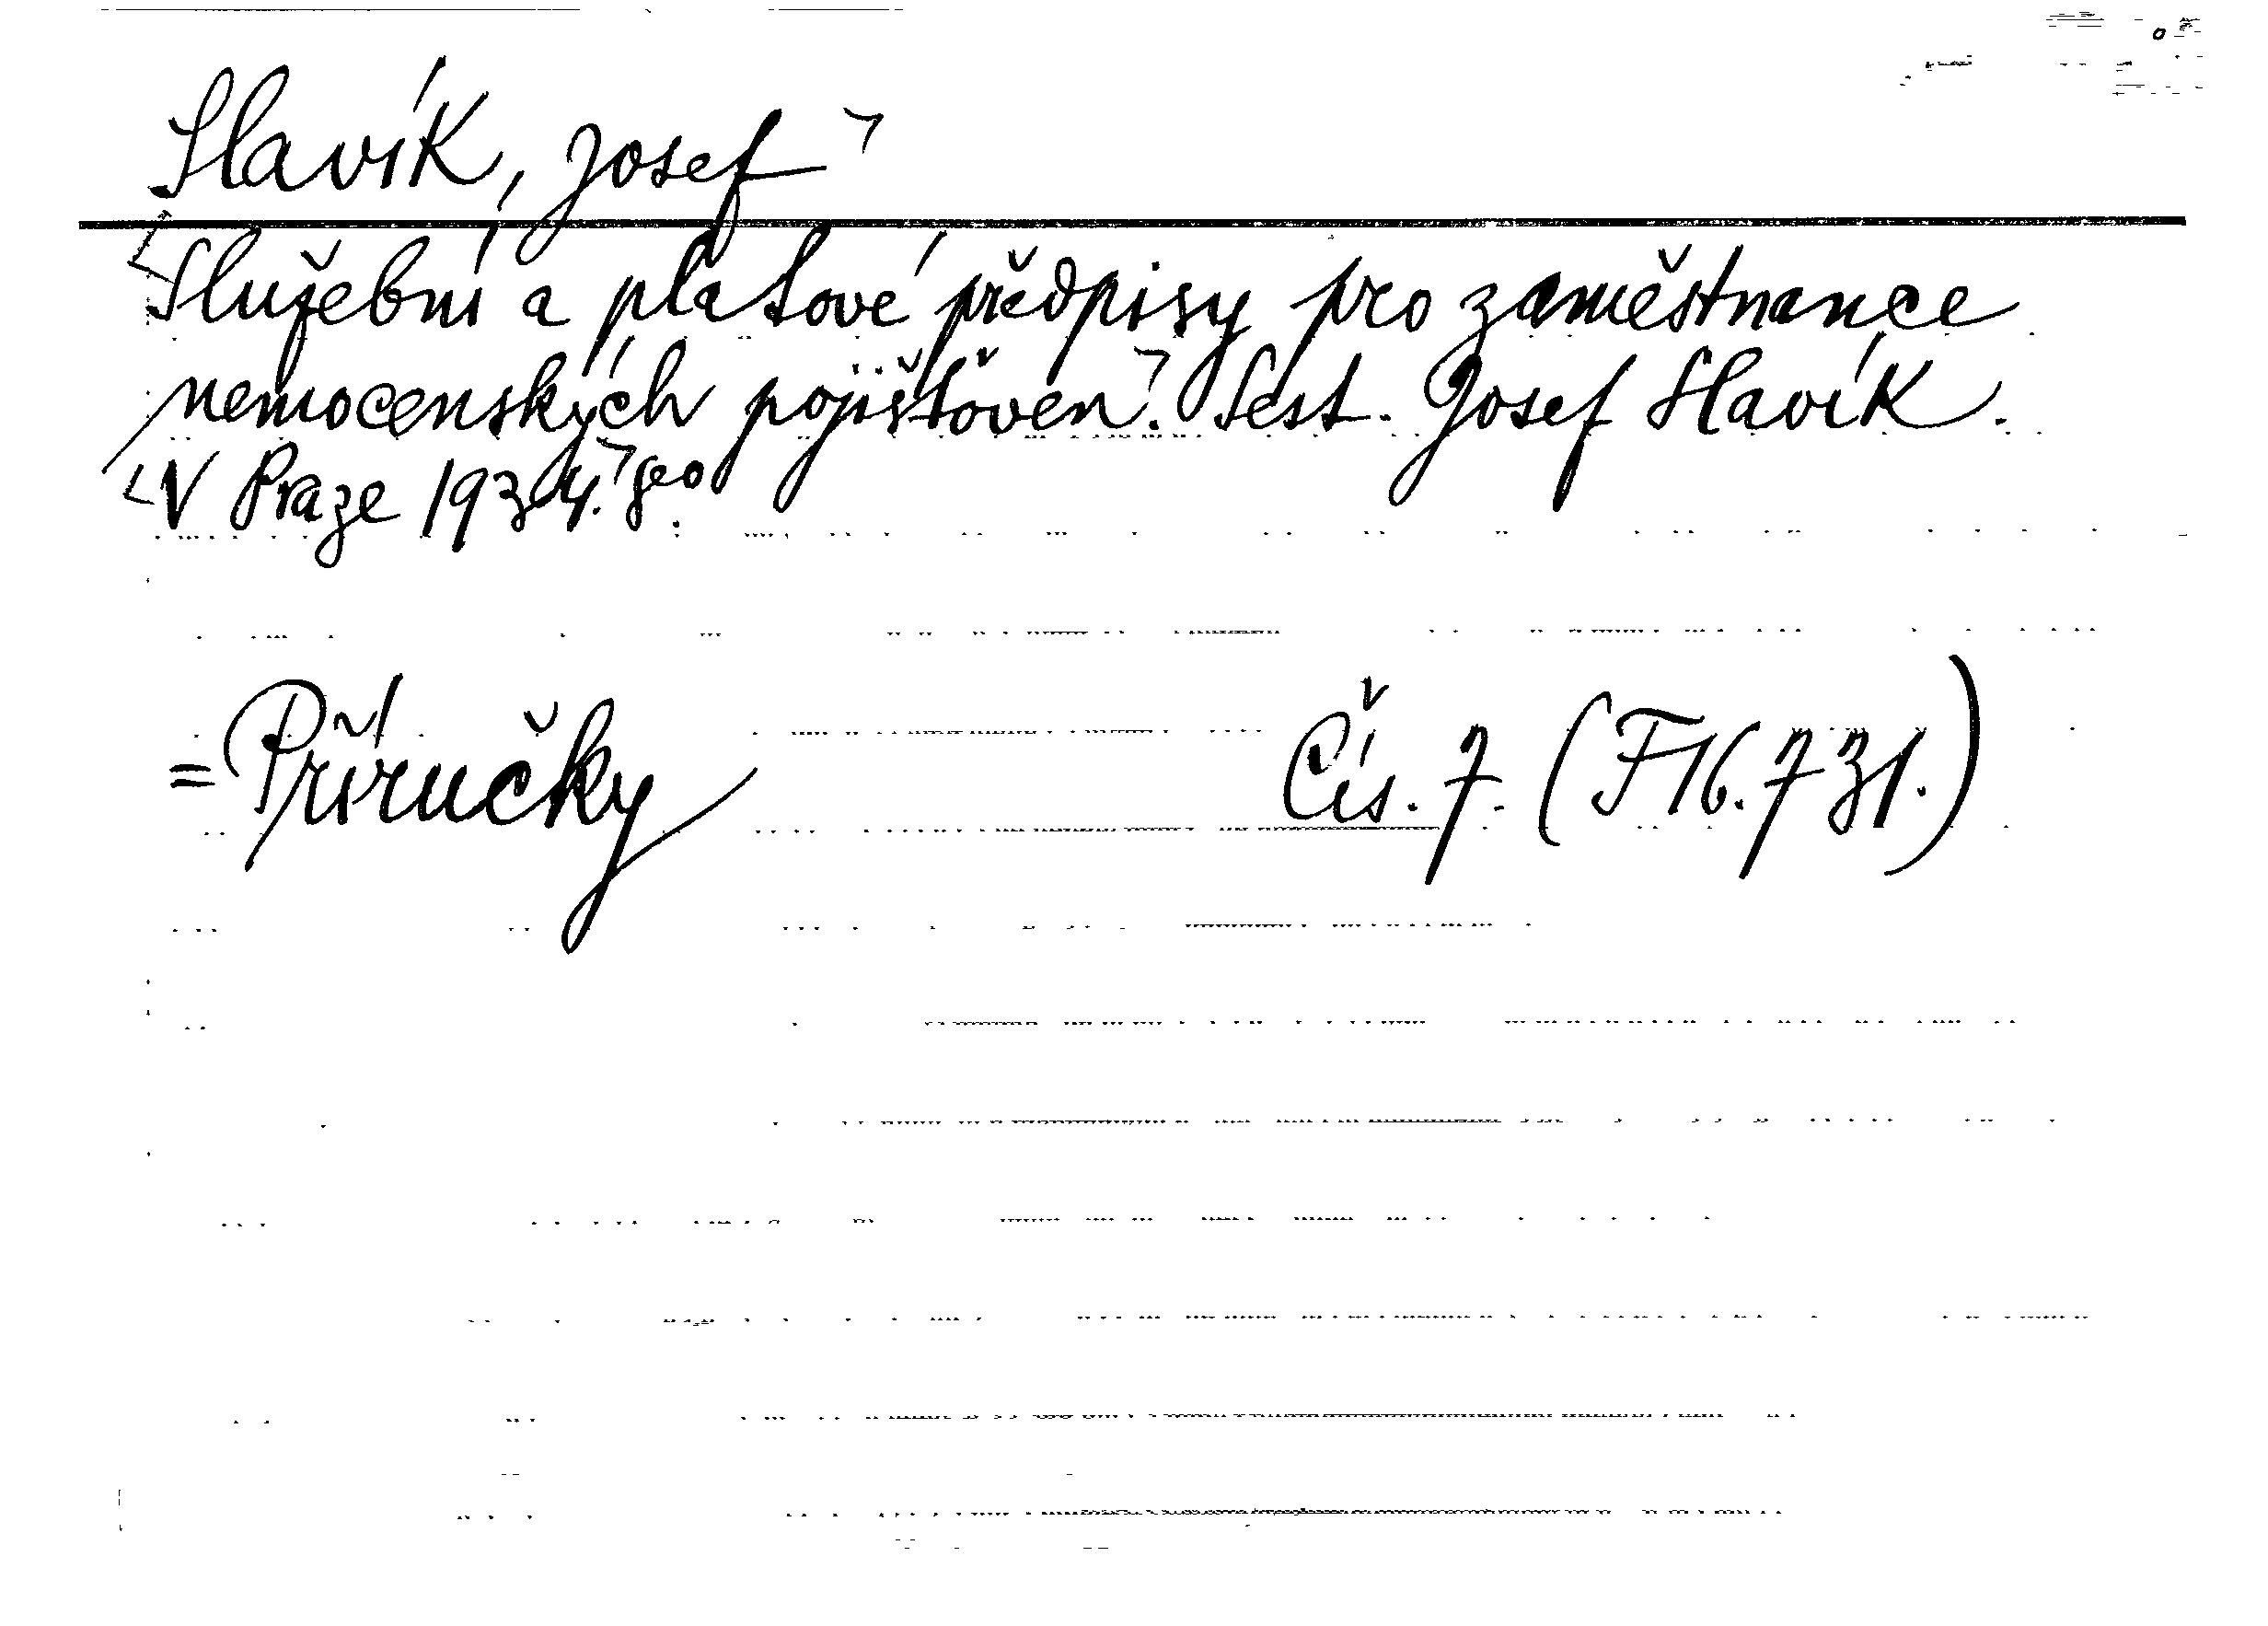 Slavík, Josef
Služební a platové předpisy pro zaměstnance
nemocenských pojišťoven. Sest. Josef Slavík.
V Praze 1934. 8°.
= Příručky Čís. 7. (F 16.731.)